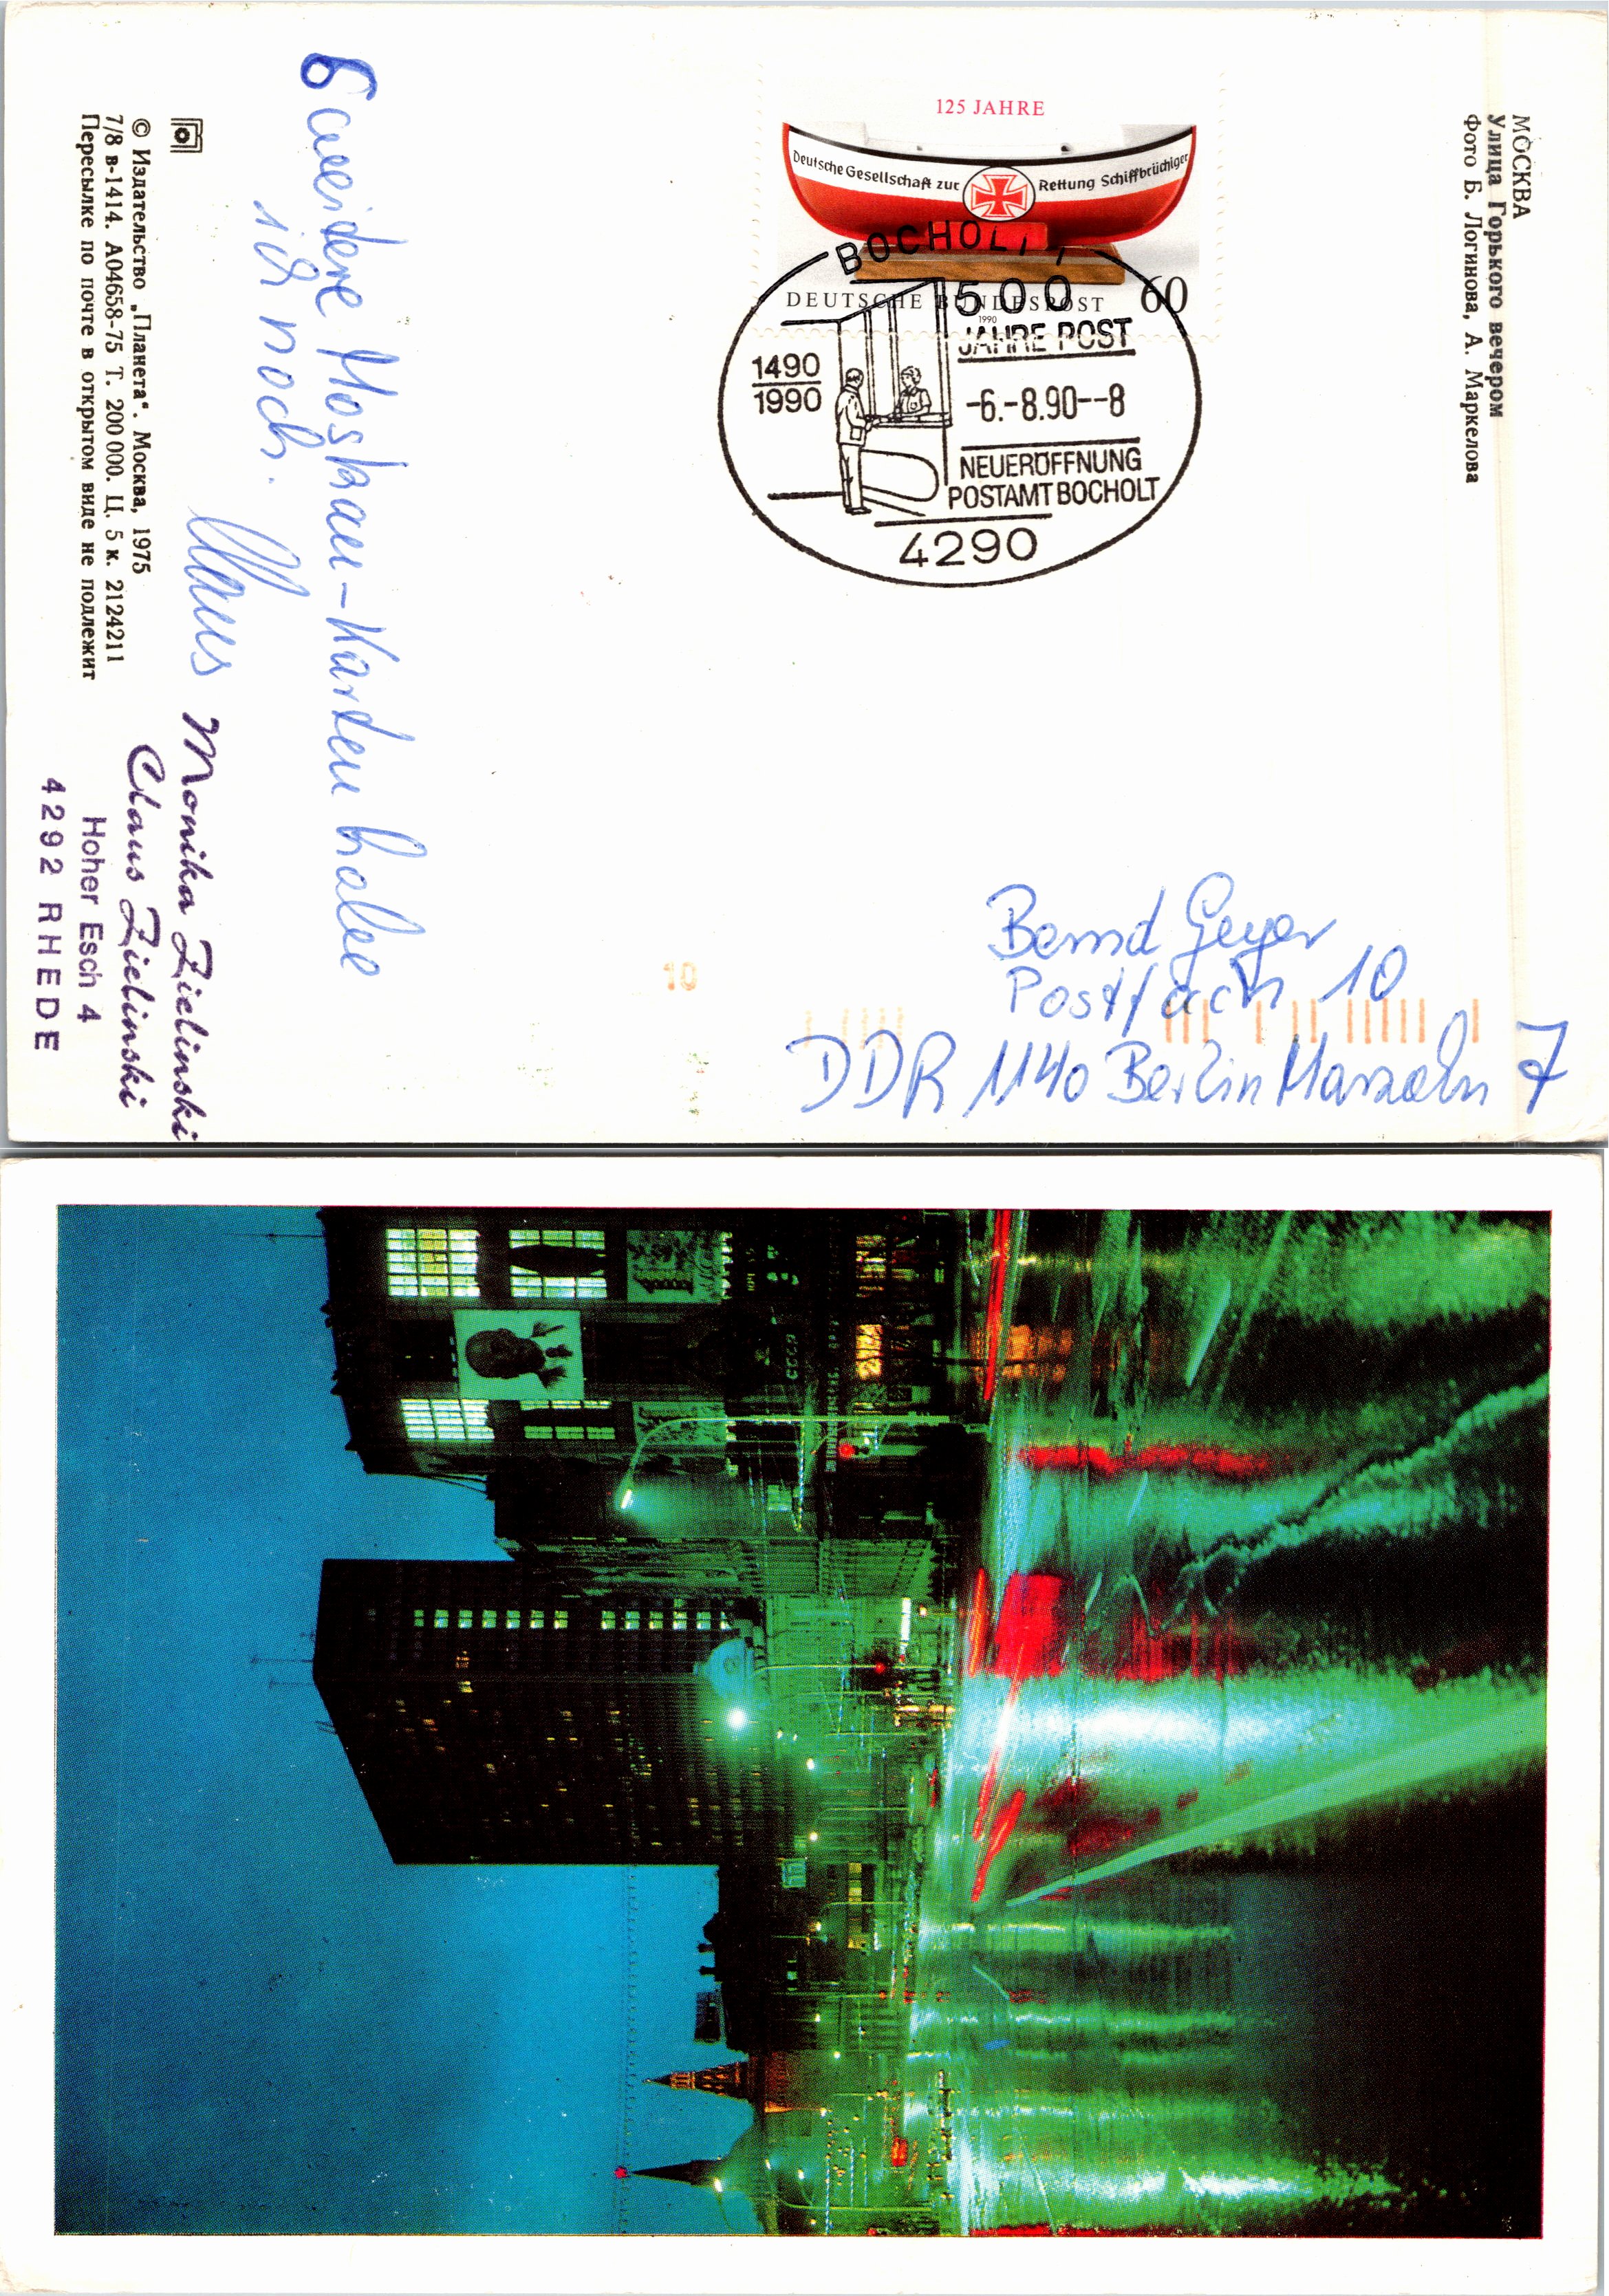 МОСКВА
Улица Горького вечером
Фото Б. Логинова, А. Маркелова
125 JAHRE
Deutsche Gesellschaft zur Rettung Schiffbrüchiger
DEUTSCHE BUNDESPOST 60
1990
BOCHOLT 1
500
JAHRE POST
1490
1990
-6.-8.90--8
NEUERÖFFNUNG
POSTAMT BOCHOLT
4290
Moskau-Karten habe
ich noch.
Claus
Bernd Geyer
Postfach 10
DDR 1140 Berlin Marzahn 7
10
© Издательство „Планета“. Москва, 1975
7/8 в-1414. А04658-75 Т. 200 000. Ц. 5 к. 2124211
Пересылке по почте в открытом виде не подлежит
Monika Zielinski
Claus Zielinski
Hoher Esch 4
4292 RHEDE
СССР